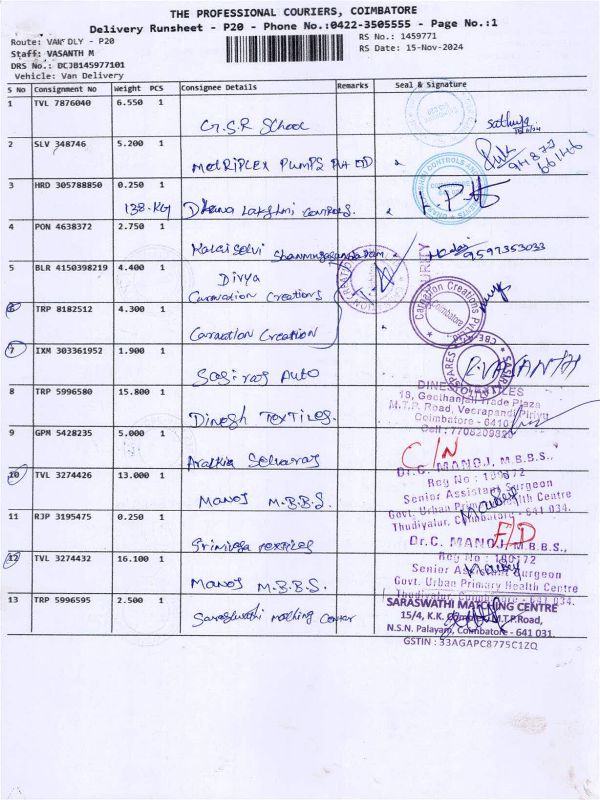 THE PROFESSIONAL COURIERS, COIMBATORE
Delivery Runsheet - P20 - Phone No.:0422-3505555 - Page No.:1
Route: VAN DLY - P20
RS No.: 1459771
Staff: VASANTH M
RS Date: 15-Nov-2024
DRS No.: DCJB145977101
Vehicle: Van Delivery
S No Consignment No Weight PCS Consignee Details Remarks Seal & Signature
1 TVL 7876040 6.550 1
G.S.R School
2 SLV 348746 5.200 1
Metriplex Pumps Pvt LTD
3 HRD 305788850 0.250 1
138-KG Dhana Lakshmi Controls.
4 PON 4638372 2.750 1
Kalai Selvi Shanmugasundaram
9597353033
5 BLR 4150398219 4.400 1
Divya
Carnation Creations
SECURITY
Carnation Creations Pvt
Coimbatore
6 TRP 8182512 4.300 1
Carnation Creation
7 IXM 303361952 1.900 1
Sasiraj Auto
R.VASANTH
8 TRP 5996580 15.800 1
Dinesh Textiles.
18, Geethanjali Trade Plaza
M.T.P. Road, Veerapandi Pirivu
Coimbatore - 6410
Cell : 7708209820
9 GPM 5428235 5.000 1
Selvaraj
C/N
10 TVL 3274426 13.000 1
Manoj M.B.B.S.
Dr.C. MANOJ, M.B.B.S.,
Reg No : 180172
Senior Assistant Surgeon
Govt. Urban Primary Health Centre
Thudiyalur, Coimbatore - 641 034.
11 RJP 3195475 0.250 1
Textiles
F/D
12 TVL 3274432 16.100 1
Manoj M.B.B.S.
Dr.C. MANOJ, M.B.B.S.,
Reg No : 180172
Senior Assistant Surgeon
Govt. Urban Primary Health Centre
Thudiyalur, Coimbatore - 641 034.
13 TRP 5996595 2.500 1
Saraswathi Matching Center
SARASWATHI MATCHING CENTRE
15/4, K.K. Complex, M.T.P.Road,
N.S.N. Palayam, Coimbatore - 641 031.
GSTIN : 33AGAPC8775C1ZQ